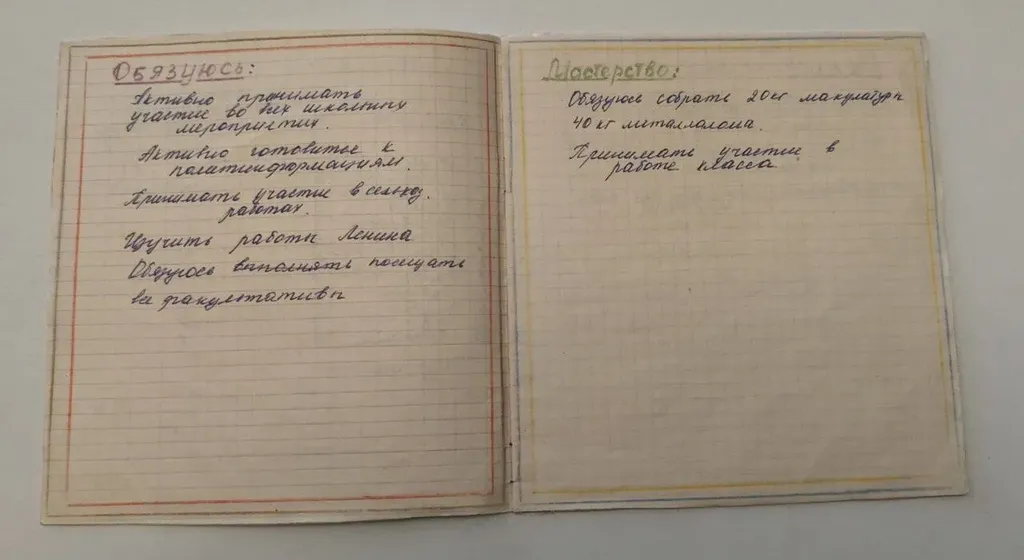 Обязуюсь:
Активно принимать
участие во всех школьных
мероприятиях.
Активно готовиться к
политинформациям.
Принимать участие в сельхоз.
работах.
Изучить работы Ленина
Обязуюсь выполнять посещать
все факультативы
Мастерство:
Обязуюсь собрать 20 кг макулатуры
40 кг металлолома.
Принимать участие в
работе класса